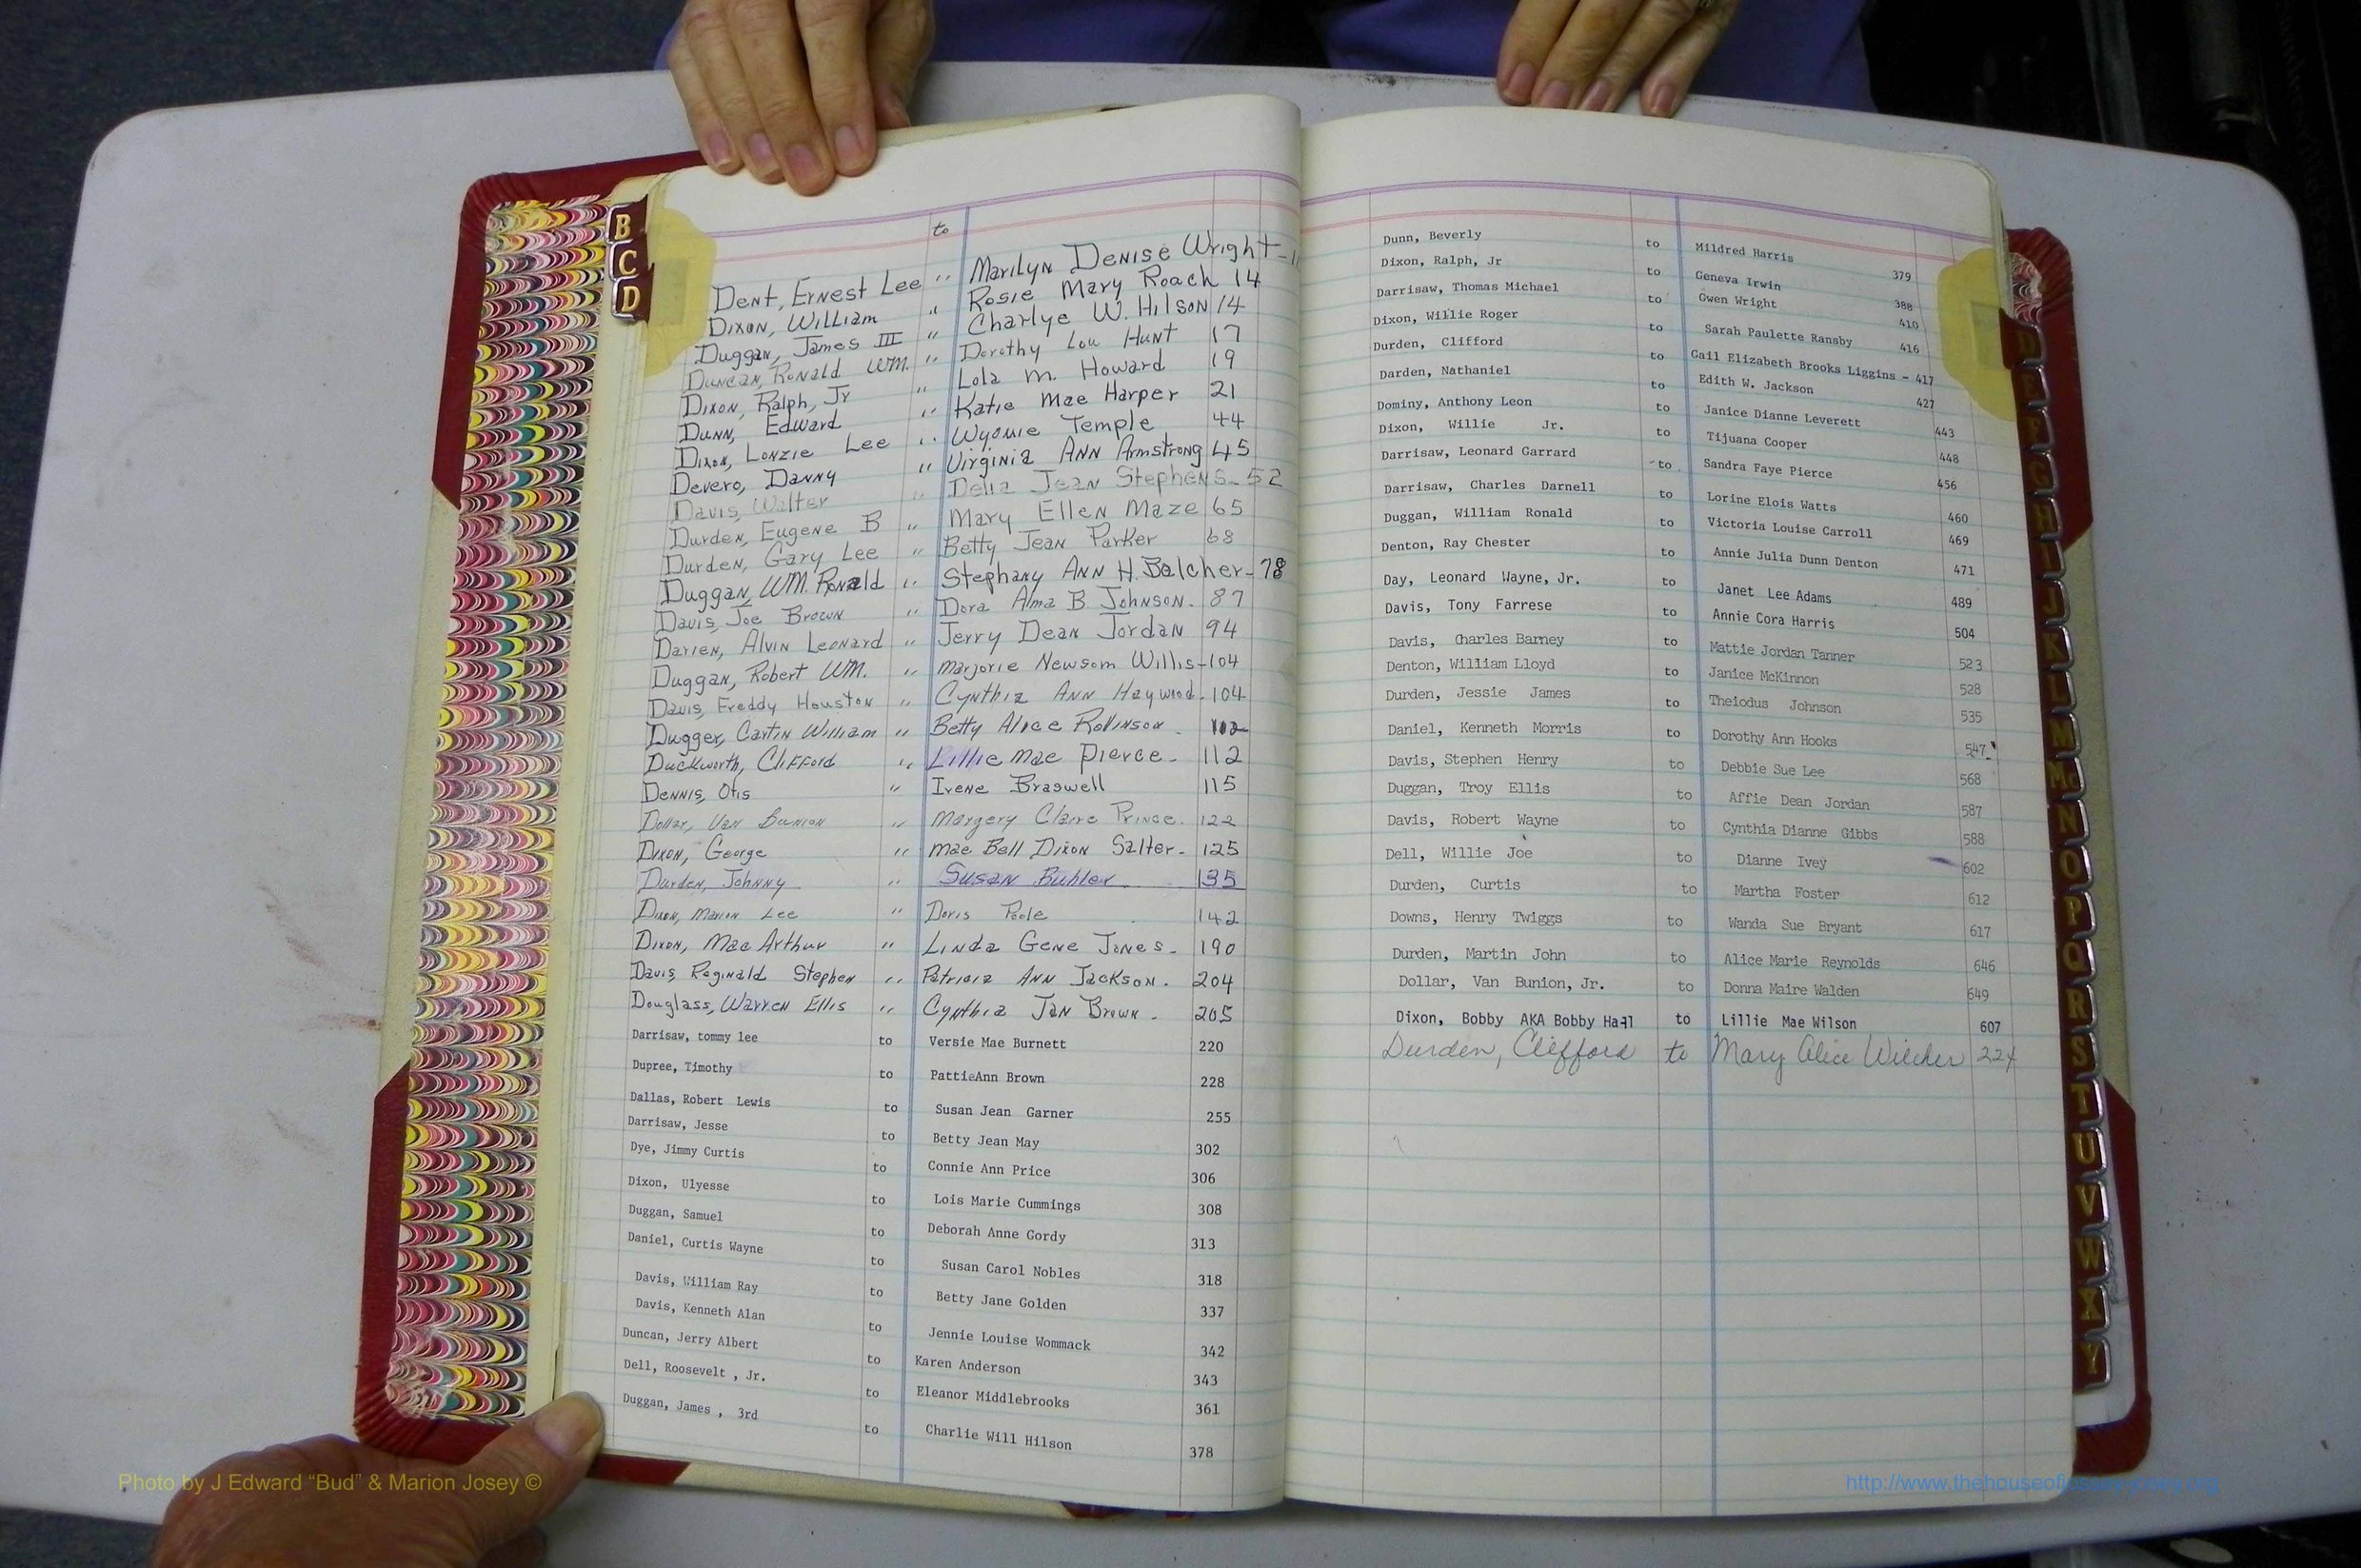 B
C
D
to
Dent, Ernest Lee " Marilyn Denise Wright - 1
Dixon, William " Rosie Mary Roach 14
Duggan, James III " Charlye W. Hilson 14
Duncan, Ronald WM. " Dorothy Lou Hunt 17
Dixon, Ralph, Jr " Lola M. Howard 19
Dunn, Edward " Katie Mae Harper 21
Dixon, Lonzie Lee " Wyomie Temple 44
Devero, Danny " Virginia Ann Armstrong 45
Davis, Walter " Delia Jean Stephens - 52
Durden, Eugene B " Mary Ellen Maze 65
Durden, Gary Lee " Betty Jean Parker 68
Duggan, WM. Ronald " Stephany Ann H. Belcher - 78
Davis, Joe Brown " Dora Alma B. Johnson. 87
Darien, Alvin Leonard " Jerry Dean Jordan 94
Duggan, Robert WM. " Marjorie Newsom Willis - 104
Davis, Freddy Houston " Cynthia Ann Haywood. 104
Dugger, Cartin William " Betty Alice Robinson.
Duckworth, Clifford " Lillie Mae Pierce - 112
Dennis, Otis " Irene Braswell 115
Dollar, Van Bunion " Margery Claire Prince. 122
Dixon, George " Mae Bell Dixon Salter - 125
Durden, Johnny " Susan Buhler 135
Dixon, Marion Lee " Doris Poole 142
Dixon, Mac Arthur " Linda Gene Jones - 190
Davis, Reginald Stephen " Patricia Ann Jackson. 204
Douglass, Warren Ellis " Cynthia Jan Brown - 205
Darrisaw, tommy lee to Versie Mae Burnett 220
Dupree, Timothy to PattieAnn Brown 228
Dallas, Robert Lewis to Susan Jean Garner 255
Darrisaw, Jesse to Betty Jean May 302
Dye, Jimmy Curtis to Connie Ann Price 306
Dixon, Ulyesse to Lois Marie Cummings 308
Duggan, Samuel to Deborah Anne Gordy 313
Daniel, Curtis Wayne to Susan Carol Nobles 318
Davis, William Ray to Betty Jane Golden 337
Davis, Kenneth Alan to Jennie Louise Wommack 342
Duncan, Jerry Albert to Karen Anderson 343
Dell, Roosevelt , Jr. to Eleanor Middlebrooks 361
Duggan, James , 3rd to Charlie Will Hilson 378
Dunn, Beverly to Mildred Harris 379
Dixon, Ralph, Jr to Geneva Irwin 388
Darrisaw, Thomas Michael to Gwen Wright 410
Dixon, Willie Roger to Sarah Paulette Ransby 416
Durden, Clifford to Gail Elizabeth Brooks Liggins - 417
Darden, Nathaniel to Edith W. Jackson 427
Dominy, Anthony Leon to Janice Dianne Leverett 443
Dixon, Willie Jr. to Tijuana Cooper 448
Darrisaw, Leonard Garrard to Sandra Faye Pierce 456
Darrisaw, Charles Darnell to Lorine Elois Watts 460
Duggan, William Ronald to Victoria Louise Carroll 469
Denton, Ray Chester to Annie Julia Dunn Denton 471
Day, Leonard Wayne, Jr. to Janet Lee Adams 489
Davis, Tony Farrese to Annie Cora Harris 504
Davis, Charles Barney to Mattie Jordan Tanner 523
Denton, William Lloyd to Janice McKinnon 528
Durden, Jessie James to Theiodus Johnson 535
Daniel, Kenneth Morris to Dorothy Ann Hooks 547
Davis, Stephen Henry to Debbie Sue Lee 568
Duggan, Troy Ellis to Affie Dean Jordan 587
Davis, Robert Wayne to Cynthia Dianne Gibbs 588
Dell, Willie Joe to Dianne Ivey 602
Durden, Curtis to Martha Foster 612
Downs, Henry Twiggs to Wanda Sue Bryant 617
Durden, Martin John to Alice Marie Reynolds 646
Dollar, Van Bunion, Jr. to Donna Maire Walden 649
Dixon, Bobby AKA Bobby Hall to Lillie Mae Wilson 607
Durden, Clifford to Mary Alice Wilcher 224
D
E
F
G
H
I
J
K
L
M
Mc
N
O
P
Q
R
S
T
U
V
W
X
Y
Photo by J Edward “Bud” & Marion Josey ©